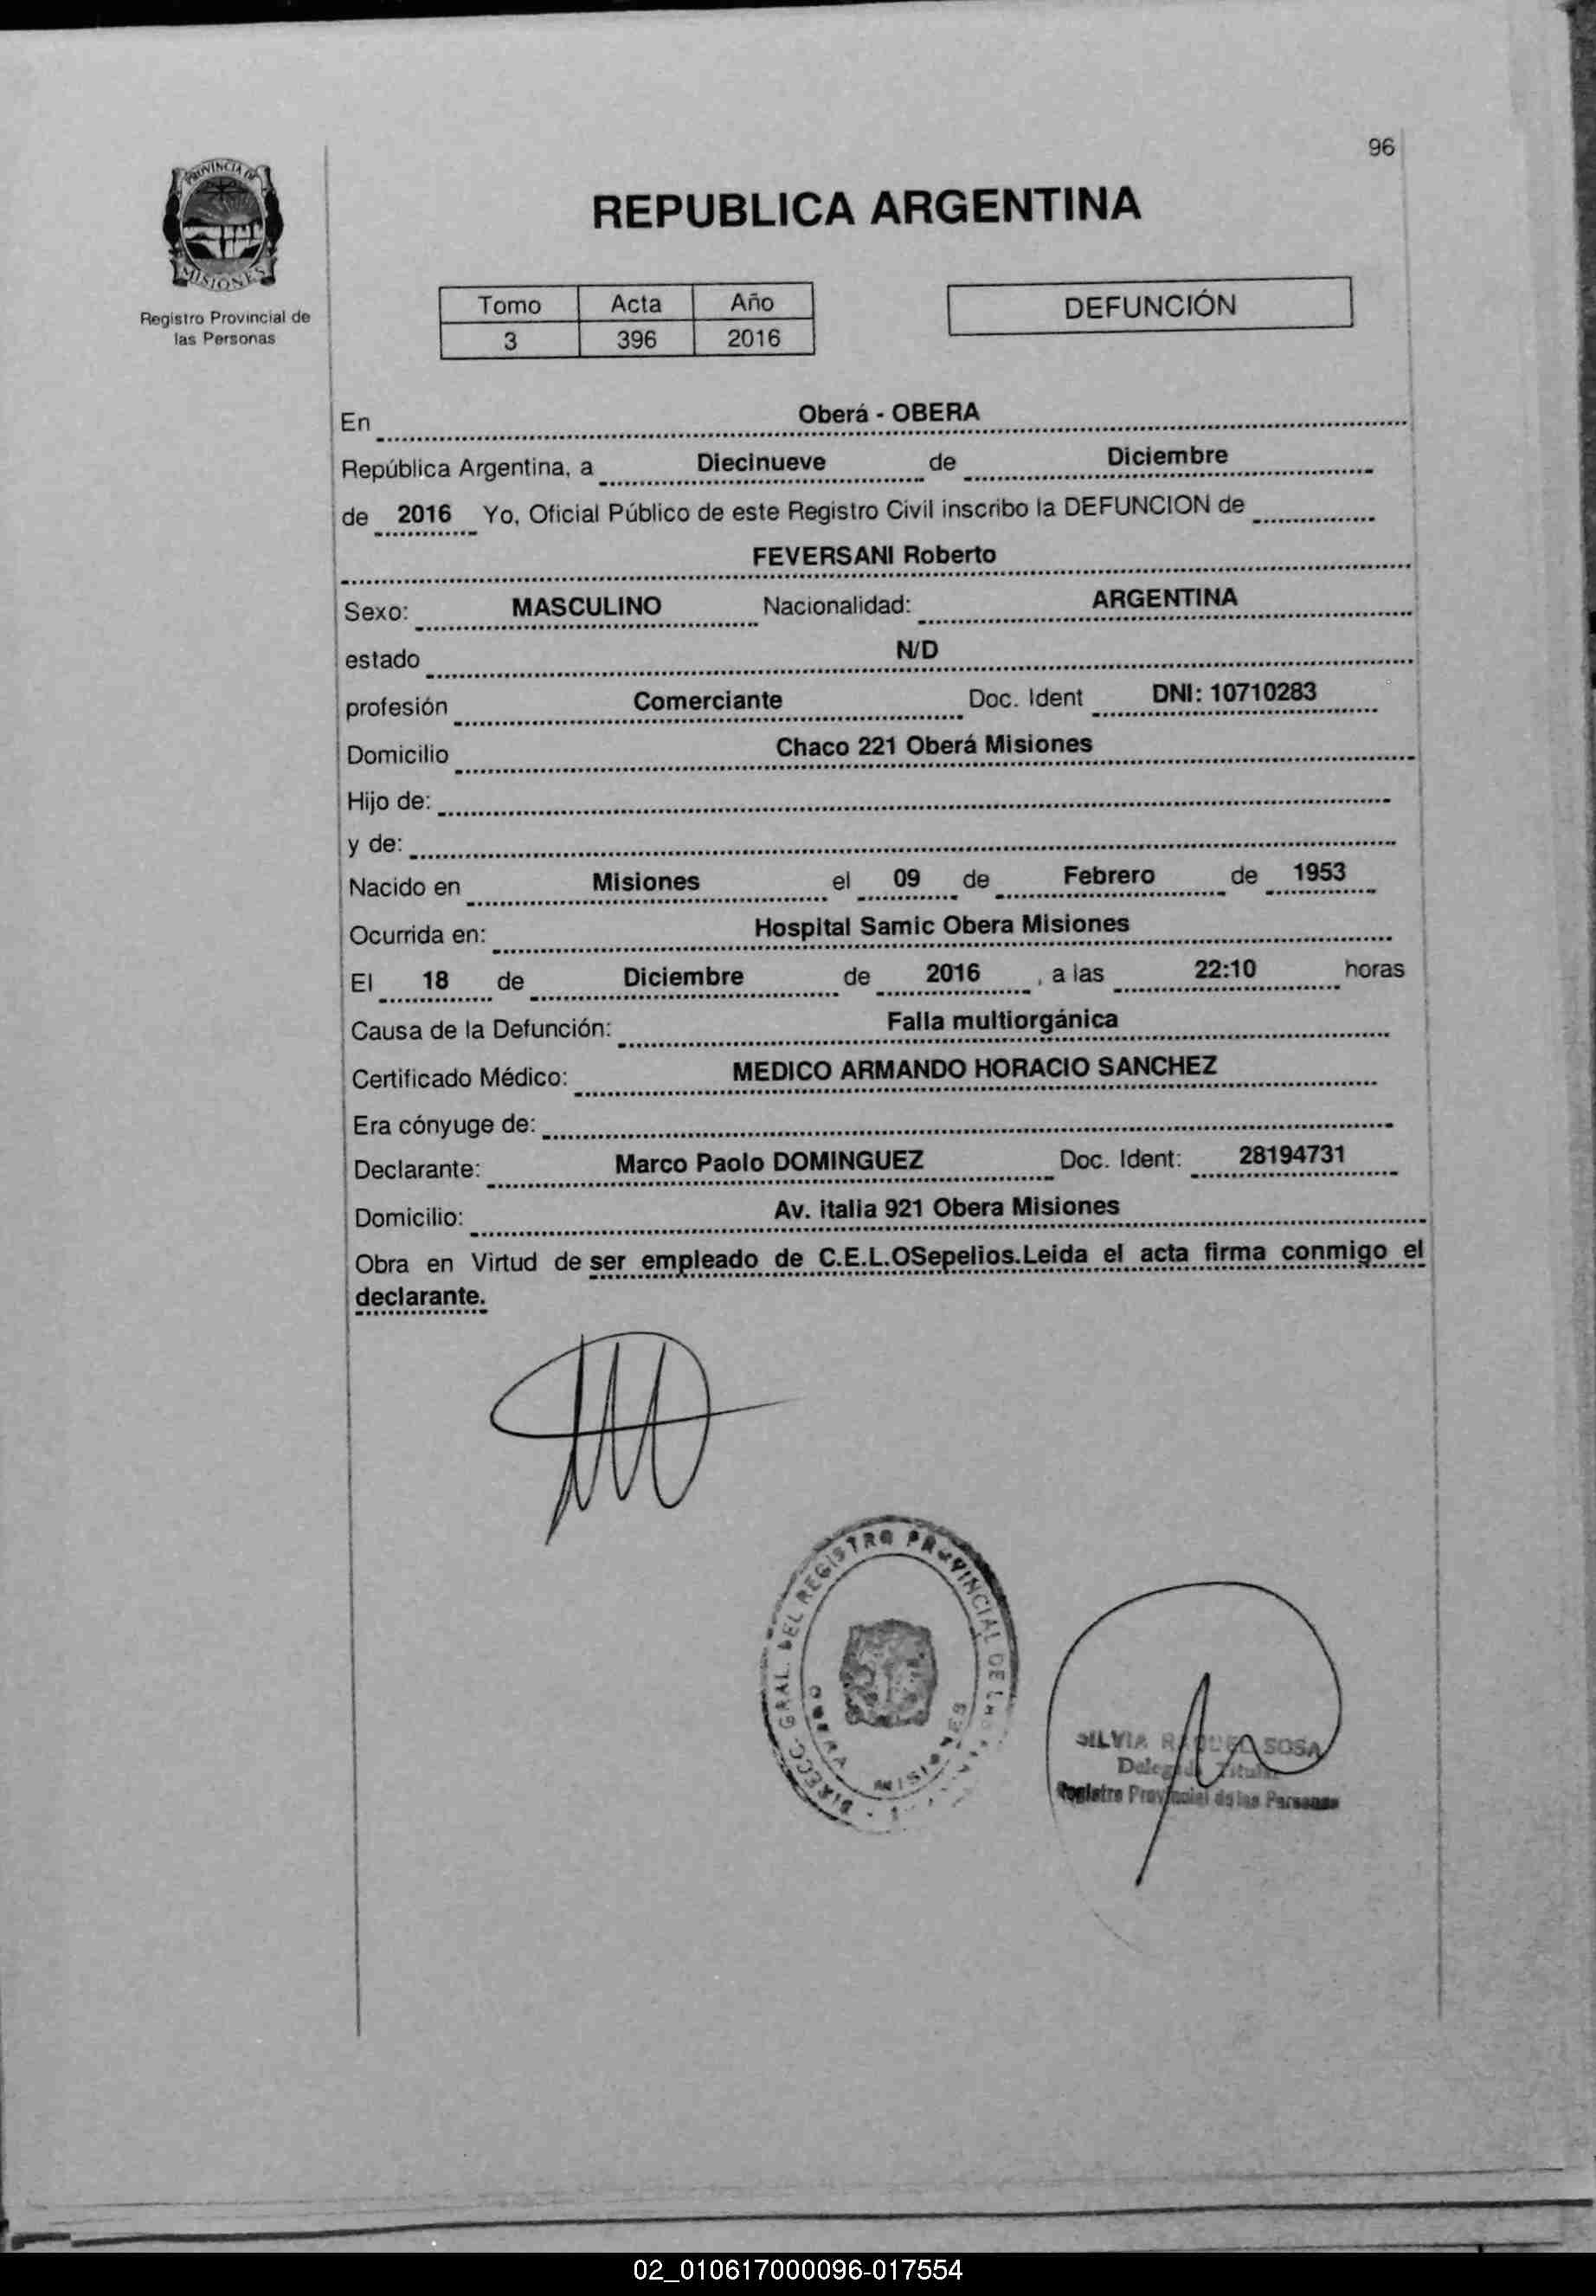 96
PROVINCIA DE
MISIONES
Registro Provincial de
las Personas
REPUBLICA ARGENTINA
Tomo Acta Año
3 396 2016
DEFUNCIÓN
En Oberá - OBERA
República Argentina, a Diecinueve de Diciembre
de 2016 Yo, Oficial Público de este Registro Civil inscribo la DEFUNCION de
FEVERSANI Roberto
Sexo: MASCULINO Nacionalidad: ARGENTINA
estado N/D
profesión Comerciante Doc. Ident DNI: 10710283
Domicilio Chaco 221 Oberá Misiones
Hijo de:
y de:
Nacido en Misiones el 09 de Febrero de 1953
Ocurrida en: Hospital Samic Obera Misiones
El 18 de Diciembre de 2016 , a las 22:10 horas
Causa de la Defunción: Falla multiorgánica
Certificado Médico: MEDICO ARMANDO HORACIO SANCHEZ
Era cónyuge de:
Declarante: Marco Paolo DOMINGUEZ Doc. Ident: 28194731
Domicilio: Av. italia 921 Obera Misiones
Obra en Virtud de ser empleado de C.E.L.OSepelios.Leida el acta firma conmigo el
declarante.
DIRECC. GRAL. DEL REGISTRO PROVINCIAL DE
OBERA MISIONES
SILVIA RAQUEL SOSA
Delegada Titular
Registro Provincial de las Personas
02_010617000096-017554